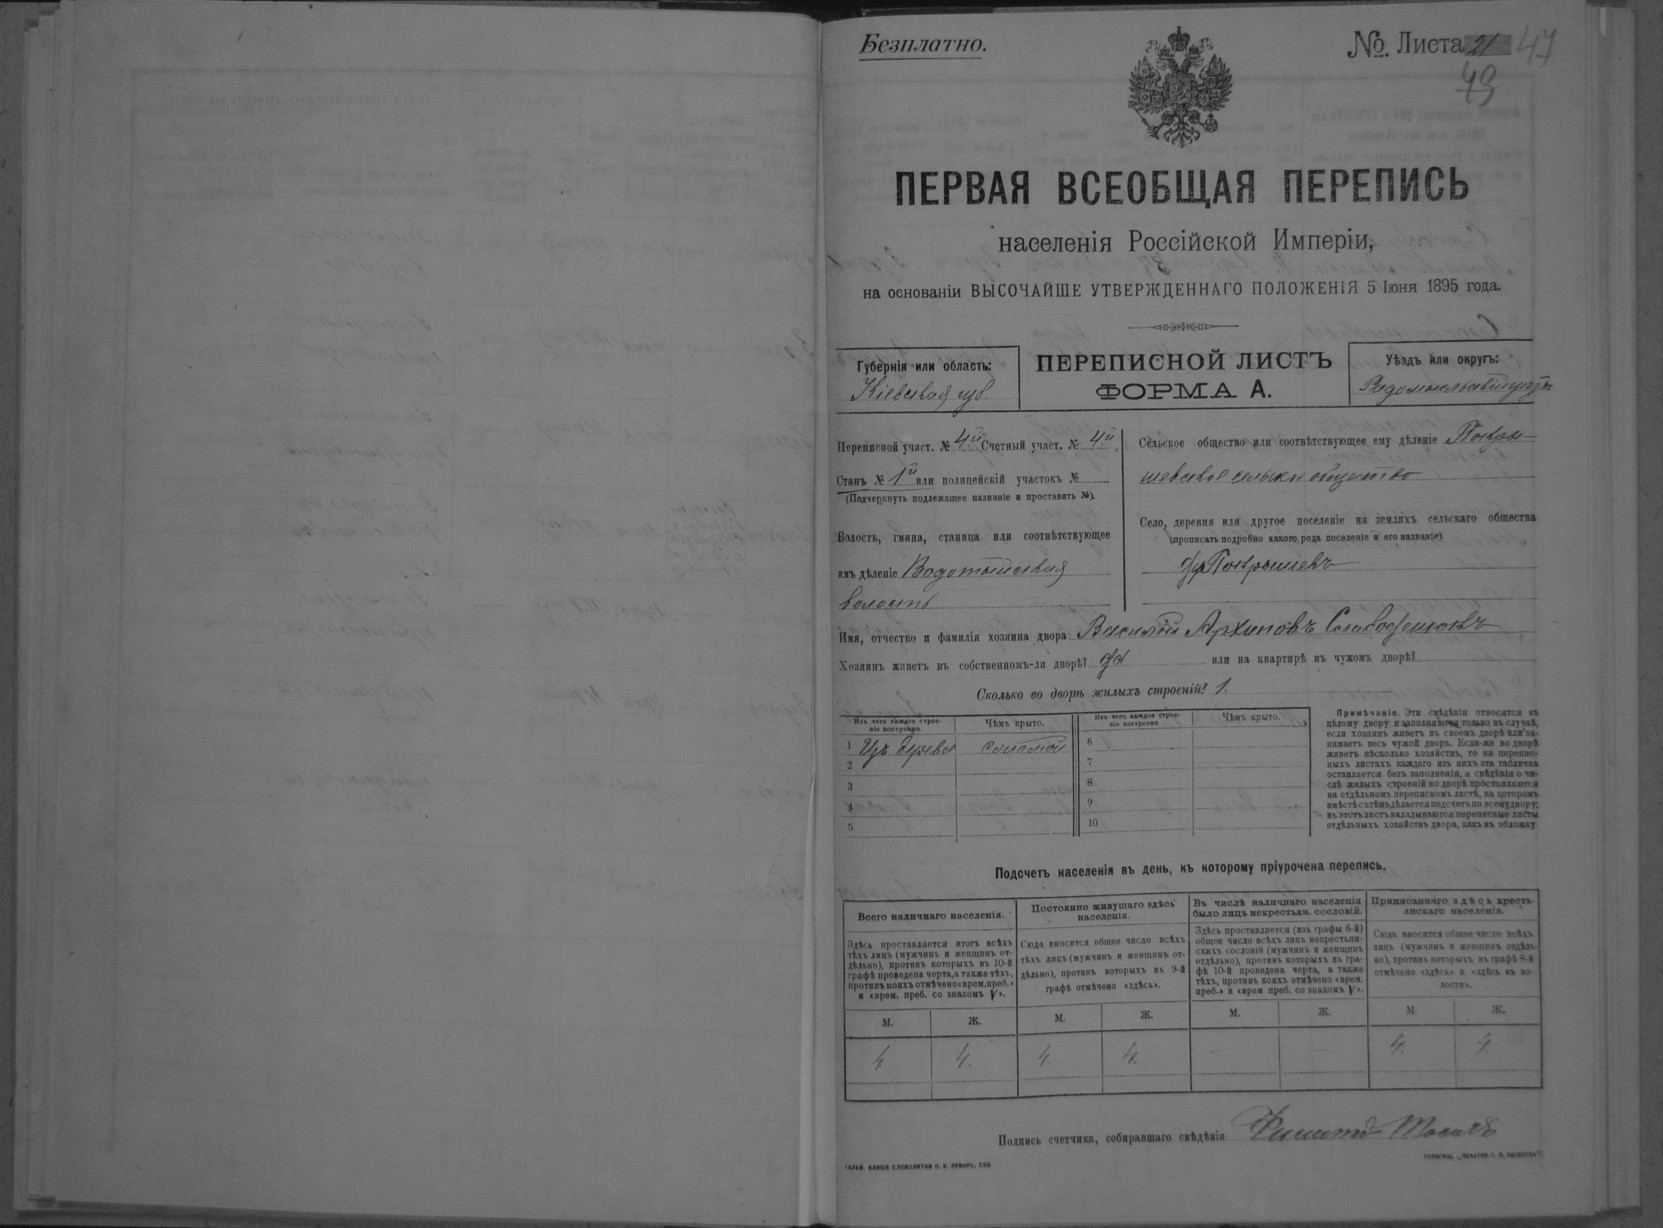 Безплатно.
№ Листа 21 47
49
ПЕРВАЯ ВСЕОБЩАЯ ПЕРЕПИСЬ
населенія Россійской Имперіи,
на основаніи ВЫСОЧАЙШЕ УТВЕРЖДЕННАГО ПОЛОЖЕНІЯ 5 Іюня 1895 года.
Губернія или область:
Кіевская губ.
ПЕРЕПИСНОЙ ЛИСТЪ
ФОРМА А.
Уѣздъ или округъ:
Переписной участ. № 4й Счетный участ. № 4й
Станъ № 1й или полицейскій участокъ №
(Подчеркнуть подлежащее названіе и проставить №).
Волость, гмина, станица или соотвѣтствующее
имъ дѣленіе Водотыйская
волость
Сельское общество или соотвѣтствующее ему дѣленіе Покры-
шевское сельское общество
Село, деревня или другое поселеніе на земляхъ сельскаго общества
(прописать подробно какого рода поселеніе и его названіе)
Покрышевъ
Имя, отчество и фамилія хозяина двора Василій Архиповъ
Хозяинъ живетъ въ собственномъ-ли дворѣ? да или на квартирѣ въ чужомъ дворѣ?
Сколько во дворѣ жилыхъ строеній? 1.
Изъ чего каждое строе-
ніе построено.
Чѣмъ крыто.
Изъ чего каждое строе-
ніе построено.
Чѣмъ крыто.
1 Изъ дерева соломой
2
3
4
5
6
7
8
9
10
Примѣчаніе. Эти свѣдѣнія относятся къ
цѣлому двору и заполняются только въ случаѣ,
если хозяинъ живетъ въ своемъ дворѣ или за-
нимаетъ весь чужой дворъ. Если-же во дворѣ
живетъ нѣсколько хозяйствъ, то на перепис-
ныхъ листахъ каждаго изъ нихъ эта табличка
оставляется безъ заполненія, а свѣдѣнія о чи-
слѣ жилыхъ строеній во дворѣ проставляются
на отдѣльномъ переписномъ листѣ, на которомъ
вмѣстѣ съ тѣмъ дѣлается подсчетъ по всему двору;
въ этотъ листъ вкладываются переписные листы
отдѣльныхъ хозяйствъ двора, какъ въ обложку.
Подсчетъ населенія въ день, къ которому пріурочена перепись.
Всего наличнаго населенія.
Постоянно живущаго здѣсь
населенія.
Въ числѣ наличнаго населенія
было лицъ некрестьян. сословій.
Приписаннаго здѣсь кресть-
янскаго населенія.
Здѣсь проставляется итогъ всѣхъ
тѣхъ лицъ (мужчинъ и женщинъ от-
дѣльно), противъ которыхъ въ 10-й
графѣ проведена черта, а также тѣхъ,
противъ коихъ отмѣчено «врем. преб.»
и «врем. преб. со знакомъ V».
Сюда вносится общее число всѣхъ
тѣхъ лицъ (мужчинъ и женщинъ от-
дѣльно), противъ которыхъ въ 9-й
графѣ отмѣчено «здѣсь».
Здѣсь проставляется (изъ графы 6-й)
общее число всѣхъ лицъ некрестьян-
скихъ сословій (мужчинъ и женщинъ
отдѣльно), противъ которыхъ въ гра-
фѣ 10-й проведена черта, а также
тѣхъ, противъ коихъ отмѣчено «врем.
преб.» и «врем преб. со знакомъ V».
Сюда вносится общее число всѣхъ
лицъ (мужчинъ и женщинъ отдѣль-
но), противъ которыхъ въ графѣ 8-й
отмѣчено «здѣсь» и «здѣсь въ во-
лости».
М. Ж. М. Ж. М. Ж. М Ж.
4 4. 4. 4. - - 4. 4
Подпись счетчика, собиравшаго свѣдѣнія
ГАЛЬВ. КЛИШЕ СЛОВОЛИТНИ О. И. ЛЕМАНЪ, СПБ.